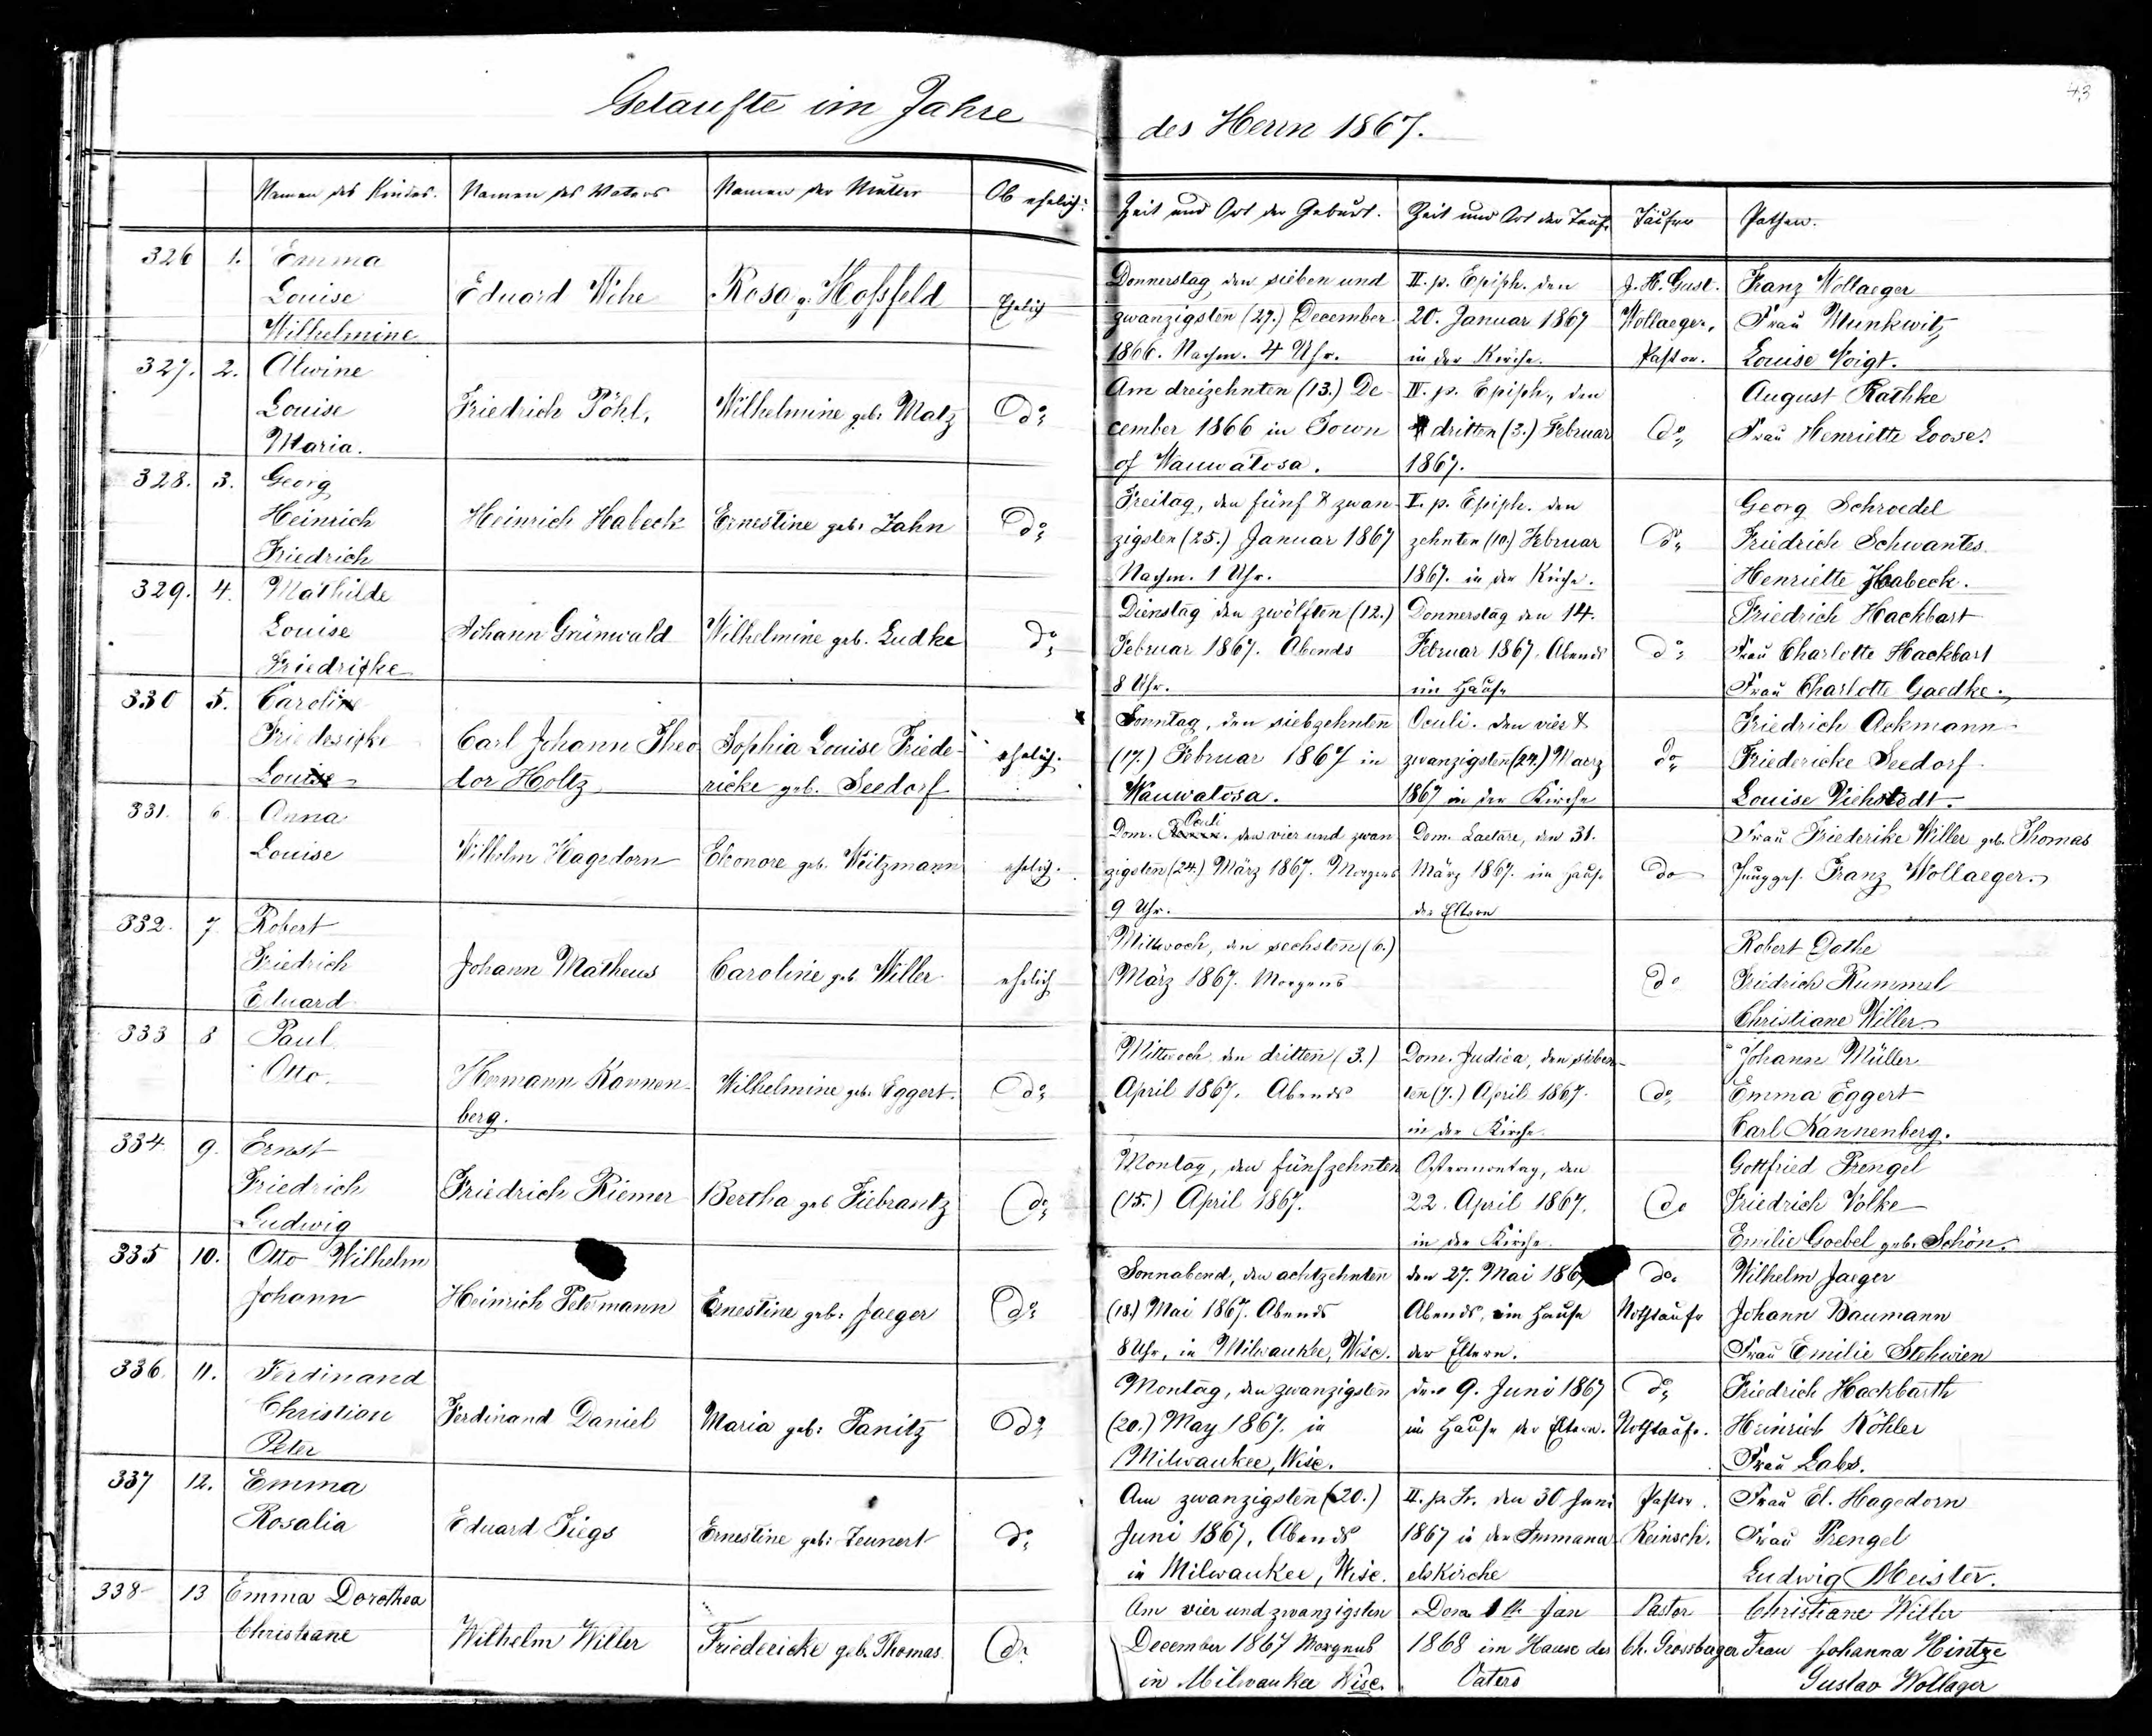 43
Getaufte im Jahre des Herrn 1867.
Namen des Kindes. Namen des Vaters Namen der Mutter Ob ehelich: Zeit und Ort der Geburt. Zeit und Ort der Taufe Täufer Pathen.
326 1. Emma Donnerstag, den sieben und II. p. Epiph. den J. H. Gust. Franz Wollaeger
Louise Eduard Wehe Rosa g. Hoßfeld Ehelich zwanzigsten (27.) December 20. Januar 1867 Wollaeger, Frau Munkwitz
Wilhelmine 1866. Nachm. 4 Uhr. in der Kirche. Pastor. Louise Voigt.
327. 2. Alwine Am dreizehnten (13.) De- IV. p. Epiph., den August Rathke
Louise Friedrich Pöhl, Wilhelmine geb. Matz do cember 1866 in Town dritten (3.) Februar do Frau Henriette Loose.
Maria. of Wauwatosa. 1867.
328. 3. Georg Freitag, den fünf & zwan- V. p. Epiph. den Georg Schroedel
Heinrich Heinrich Habeck Ernestine geb. Zahn do zigsten (25.) Januar 1867 zehnten (10.) Februar do Friedrich Schwantes
Friedrich Nachm. 1 Uhr. 1867. in der Kirche. Henriette Habeck.
329. 4. Mathilde Dienstag den zwölften (12.) Donnerstag den 14. Friedrich Hackbart
Louise Johann Grünwald Wilhelmine geb. Ludke do Februar 1867. Abends Februar 1867. Abends do Frau Charlotte Hackbart
Friedricke 8 Uhr. im Hause Frau Charlotte Gaedke.
330 5. Caroline Sonntag, den siebzehnten Oculi. den vier & Friedrich Ackmann
Friedericke Carl Johann Theo Sophia Louise Friede- ehelich. (17.) Februar 1867 in zwanzigsten (24.) Maerz do Friedericke Seedorf
Louise dor Holtz ricke geb. Seedorf Wauwatosa. 1867 in der Kirche Louise Viehstedt.
331. 6. Anna Dom. Oculi den vier und zwan Dom. Laetare, den 31. Frau Friederike Willer geb. Thomas
Louise Wilhelm Hagedorn Eleonore geb. Weitzmann ehelich. zigsten (24.) März 1867. Morgens März 1867. im Hause do Junggs. Franz Wollaeger.
9 Uhr. der Eltern
332. 7. Robert Mittwoch, den sechsten (6.) Robert Dathe
Friedrich Johann Matheus Caroline geb. Willer ehelich März 1867. Morgens do Friedrich Rummel
Eduard Christiane Willer.
333 8 Paul Mittwoch den dritten (3.) Dom. Judica, den sieben- Johann Müller
Otto. Hermann Kannen- Wilhelmine geb. Eggert. do April 1867. Abends ten (7.) April 1867. do Emma Eggert
berg. in der Kirche. Carl Kannenberg.
334 9. Ernst Montag, den fünfzehnten Ostermontag, den Gottfried Prengel
Friedrich Friedrich Riemer Bertha geb. Fiebrantz do (15.) April 1867. 22. April 1867. do Friedrich Volke
Ludwig in der Kirche. Emilie Goebel geb. Schön.
335 10. Otto Wilhelm Sonnabend, den achtzehnten den 27. Mai 1867 do. Wilhelm Jaeger
Johann Heinrich Petermann Ernestine geb. Jaeger do (18.) Mai 1867. Abends Abends, im Hause Nothtaufe Johann Baumann
8 Uhr, in Milwaukee, Wisc. der Eltern. Frau Emilie Stehwien
336. 11. Ferdinand Montag, den zwanzigsten den 9. Juni 1867 do Friedrich Hackbarth
Christian Ferdinand Daniel Maria geb. Panitz do (20.) May 1867. in im Hause der Eltern. Nothtaufe. Heinrich Köhler
Peter Milwaukee, Wisc. Frau Labs.
337 12. Emma Am zwanzigsten (20.) II. p. Tr. den 30 Juni Pastor. Frau El. Hagedorn
Rosalia Eduard Tiegs Ernestine geb. Zeunert do Juni 1867, Abends 1867 in der Immanu Reinsch. Frau Prengel
in Milwaukee, Wisc. elskirche Ludwig Meister.
338 13 Emma Dorothea Am vier und zwanzigsten Dom Jan Pastor Christiane Willer
Christiane Wilhelm Willer Friedericke geb. Thomas do December 1867 Morgens 1868 im Hause des Ch. Grossberger Frau Johanna Hintze
in Milwaukee Wisc. Vaters Gustav Wollager